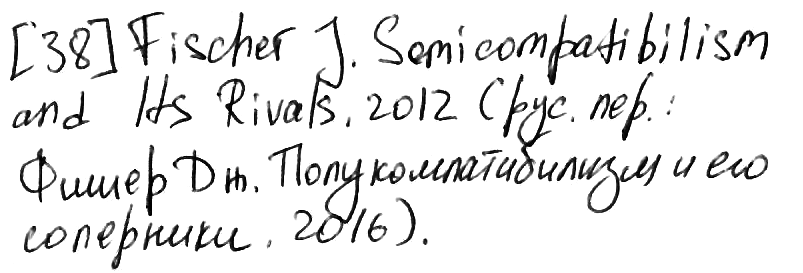 [38] Fischer J. Semicompatibilism
and Its Rivals. 2012 (рус. пер.:
Фишер Дж. Полукомпатибилизм и его
соперники. 2016).